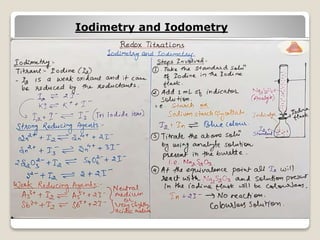 Iodimetry and Iodometry
Redox Titrations
Iodimetry and Iodometry
Iodimetry:
Titrant - Iodine (I₂)
- I₂ is a weak oxidant and it can
be reduced by the reductants.
I₂ + 2e⁻ ⇌ 2I⁻
KI ⇌ K⁺ + I⁻
I₂ + I⁻ ⇌ I₃⁻ (Tri iodide ion)
Strong Reducing Agents:-
+ I₂ ⇌ + 2I⁻
Sn²⁺ + I₂ ⇌ + 2I⁻
+ I₂ ⇌ + 2I⁻
+ I₂ ⇌ + 2I⁻
Weak Reducing Agents:-
As³⁺ + I₂ ⇌ As⁵⁺ + 2I⁻
Sb³⁺ + I₂ ⇌ Sb⁵⁺ + 2I⁻
Neutral
medium
or
very slightly
acidic medium
Steps Involved:-
① Take the standard solⁿ
of Iodine in the Iodine
flask
② Add 1 mL of indicator
solution
i.e. Starch or
Sodium starch glycollate
I₂ + In → Blue colour
③ Titrate the above solⁿ
by using analyte solution
present in the burette.
i.e. Na₂S₂O₃
④ At the equivalence point all I₂ will
react with Na₂S₂O₃ and solution present
in the iodine flask will be colourless.
In + 2I⁻ → No reaction.
Colourless solution.
Na₂S₂O₃
(Analyte)
Iodine
flask
Indicator
I₂